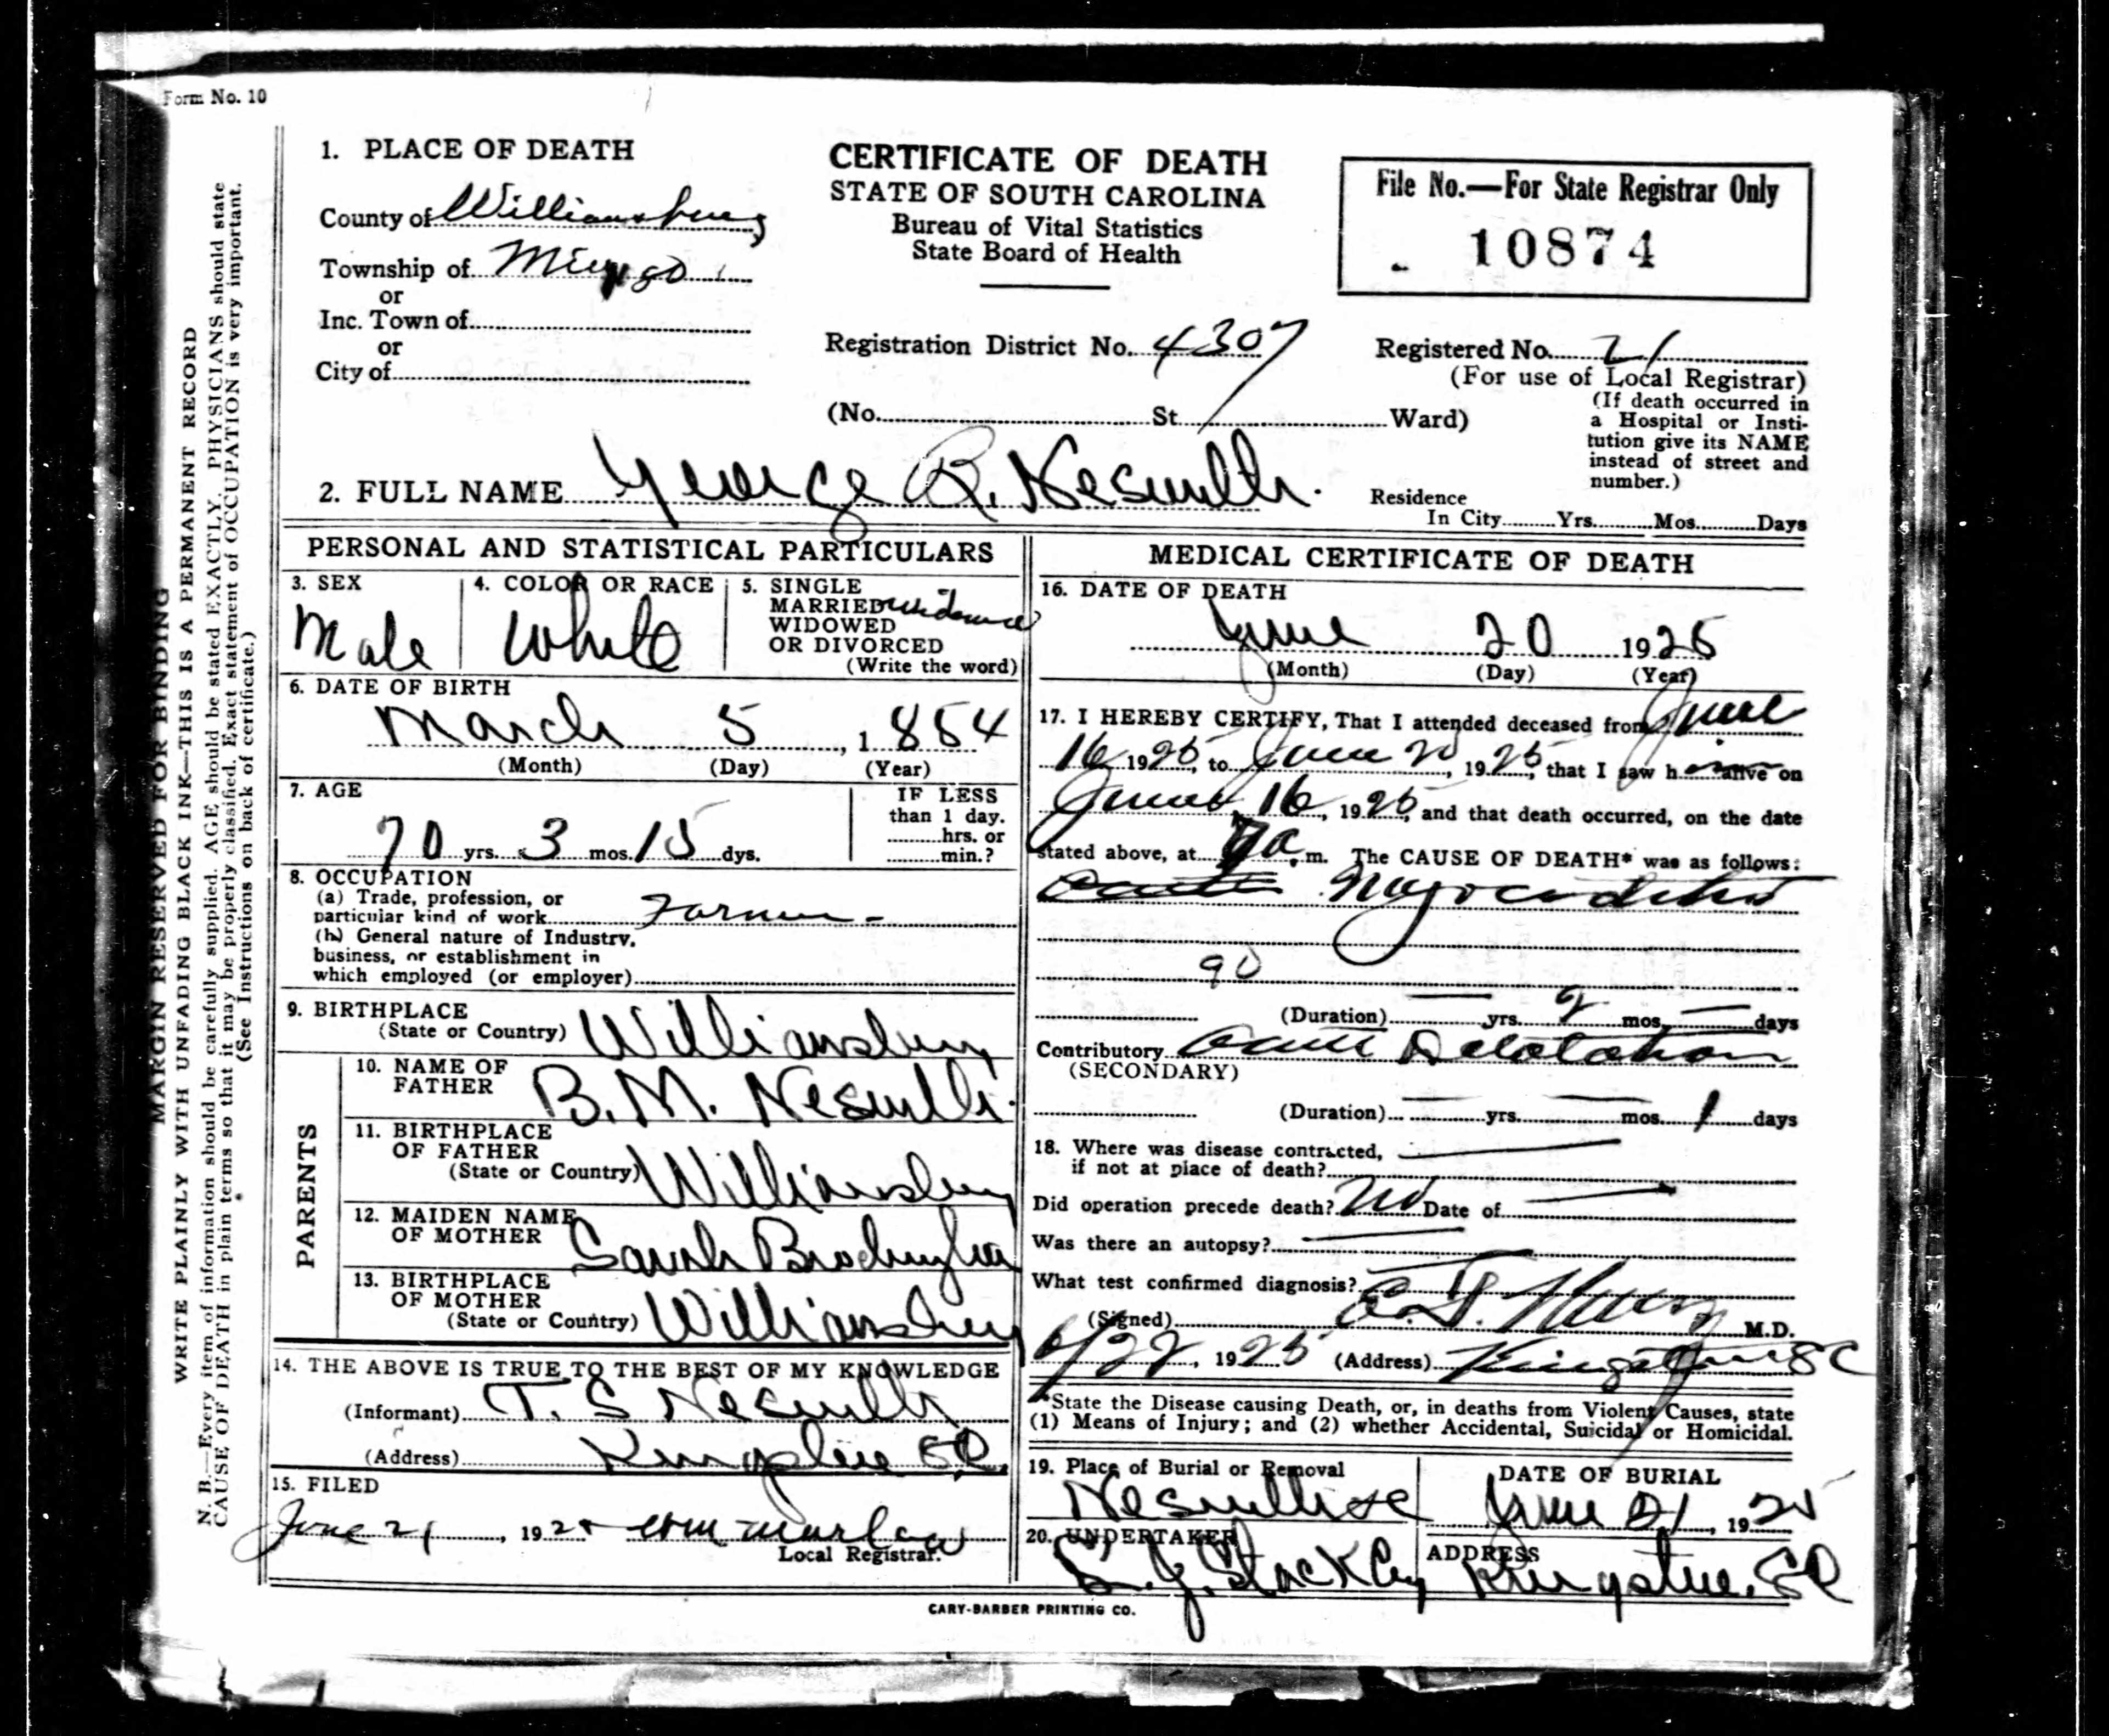 Form No. 10
MARGIN RESERVED FOR BINDING
WRITE PLAINLY WITH UNFADING BLACK INK—THIS IS A PERMANENT RECORD
N. B.—Every item of information should be carefully supplied. AGE should be stated EXACTLY. PHYSICIANS should state
CAUSE OF DEATH in plain terms so that it may be properly classified. Exact statement of OCCUPATION is very important.
(See Instructions on back of certificate.)
1. PLACE OF DEATH
County of Williamsburg
Township of Mingo
or
Inc. Town of
or
City of
CERTIFICATE OF DEATH
STATE OF SOUTH CAROLINA
Bureau of Vital Statistics
State Board of Health
File No.—For State Registrar Only
10874
Registration District No. 4307
Registered No. 21
(For use of Local Registrar)
(No. St. Ward)
(If death occurred in
a Hospital or Insti-
tution give its NAME
instead of street and
number.)
2. FULL NAME George R. Nesmith.
Residence
In City Yrs. Mos. Days
PERSONAL AND STATISTICAL PARTICULARS
3. SEX
Male
4. COLOR OR RACE
White
5. SINGLE
MARRIED
WIDOWED
OR DIVORCED
(Write the word)
widowed
6. DATE OF BIRTH
March 5, 1854
(Month) (Day) (Year)
7. AGE
70 yrs. 3 mos. 15 dys.
IF LESS
than 1 day.
hrs. or
min.?
8. OCCUPATION
(a) Trade, profession, or
particular kind of work Farmer
(b) General nature of Industry,
business, or establishment in
which employed (or employer)
9. BIRTHPLACE
(State or Country) Williamsburg
PARENTS
10. NAME OF
FATHER B. M. Nesmith.
11. BIRTHPLACE
OF FATHER
(State or Country) Williamsburg
12. MAIDEN NAME
OF MOTHER Sarah
13. BIRTHPLACE
OF MOTHER
(State or Country) Williamsburg
14. THE ABOVE IS TRUE TO THE BEST OF MY KNOWLEDGE
(Informant) T. S Nesmith
(Address) Kingstree SC
15. FILED
June 21, 192
Local Registrar.
MEDICAL CERTIFICATE OF DEATH
16. DATE OF DEATH
June 20 1925
(Month) (Day) (Year)
17. I HEREBY CERTIFY, That I attended deceased from June
16 1925, to June 20, 1925, that I saw him alive on
June 16, 1925, and that death occurred, on the date
stated above, at m. The CAUSE OF DEATH* was as follows:
Myocarditis
90
(Duration) yrs. 2 mos. days
Contributory Acute Dilatation
(SECONDARY)
(Duration) yrs. mos. 1 days
18. Where was disease contracted,
if not at place of death?
Did operation precede death? No Date of
Was there an autopsy?
What test confirmed diagnosis?
(Signed) M.D.
6/22, 1925 (Address) Kingstree SC
*State the Disease causing Death, or, in deaths from Violent Causes, state
(1) Means of Injury; and (2) whether Accidental, Suicidal or Homicidal.
19. Place of Burial or Removal
Nesmith SC
DATE OF BURIAL
June 21, 1925
20. UNDERTAKER
L. J. Stackley
ADDRESS
Kingstree, SC
CARY-BARBER PRINTING CO.